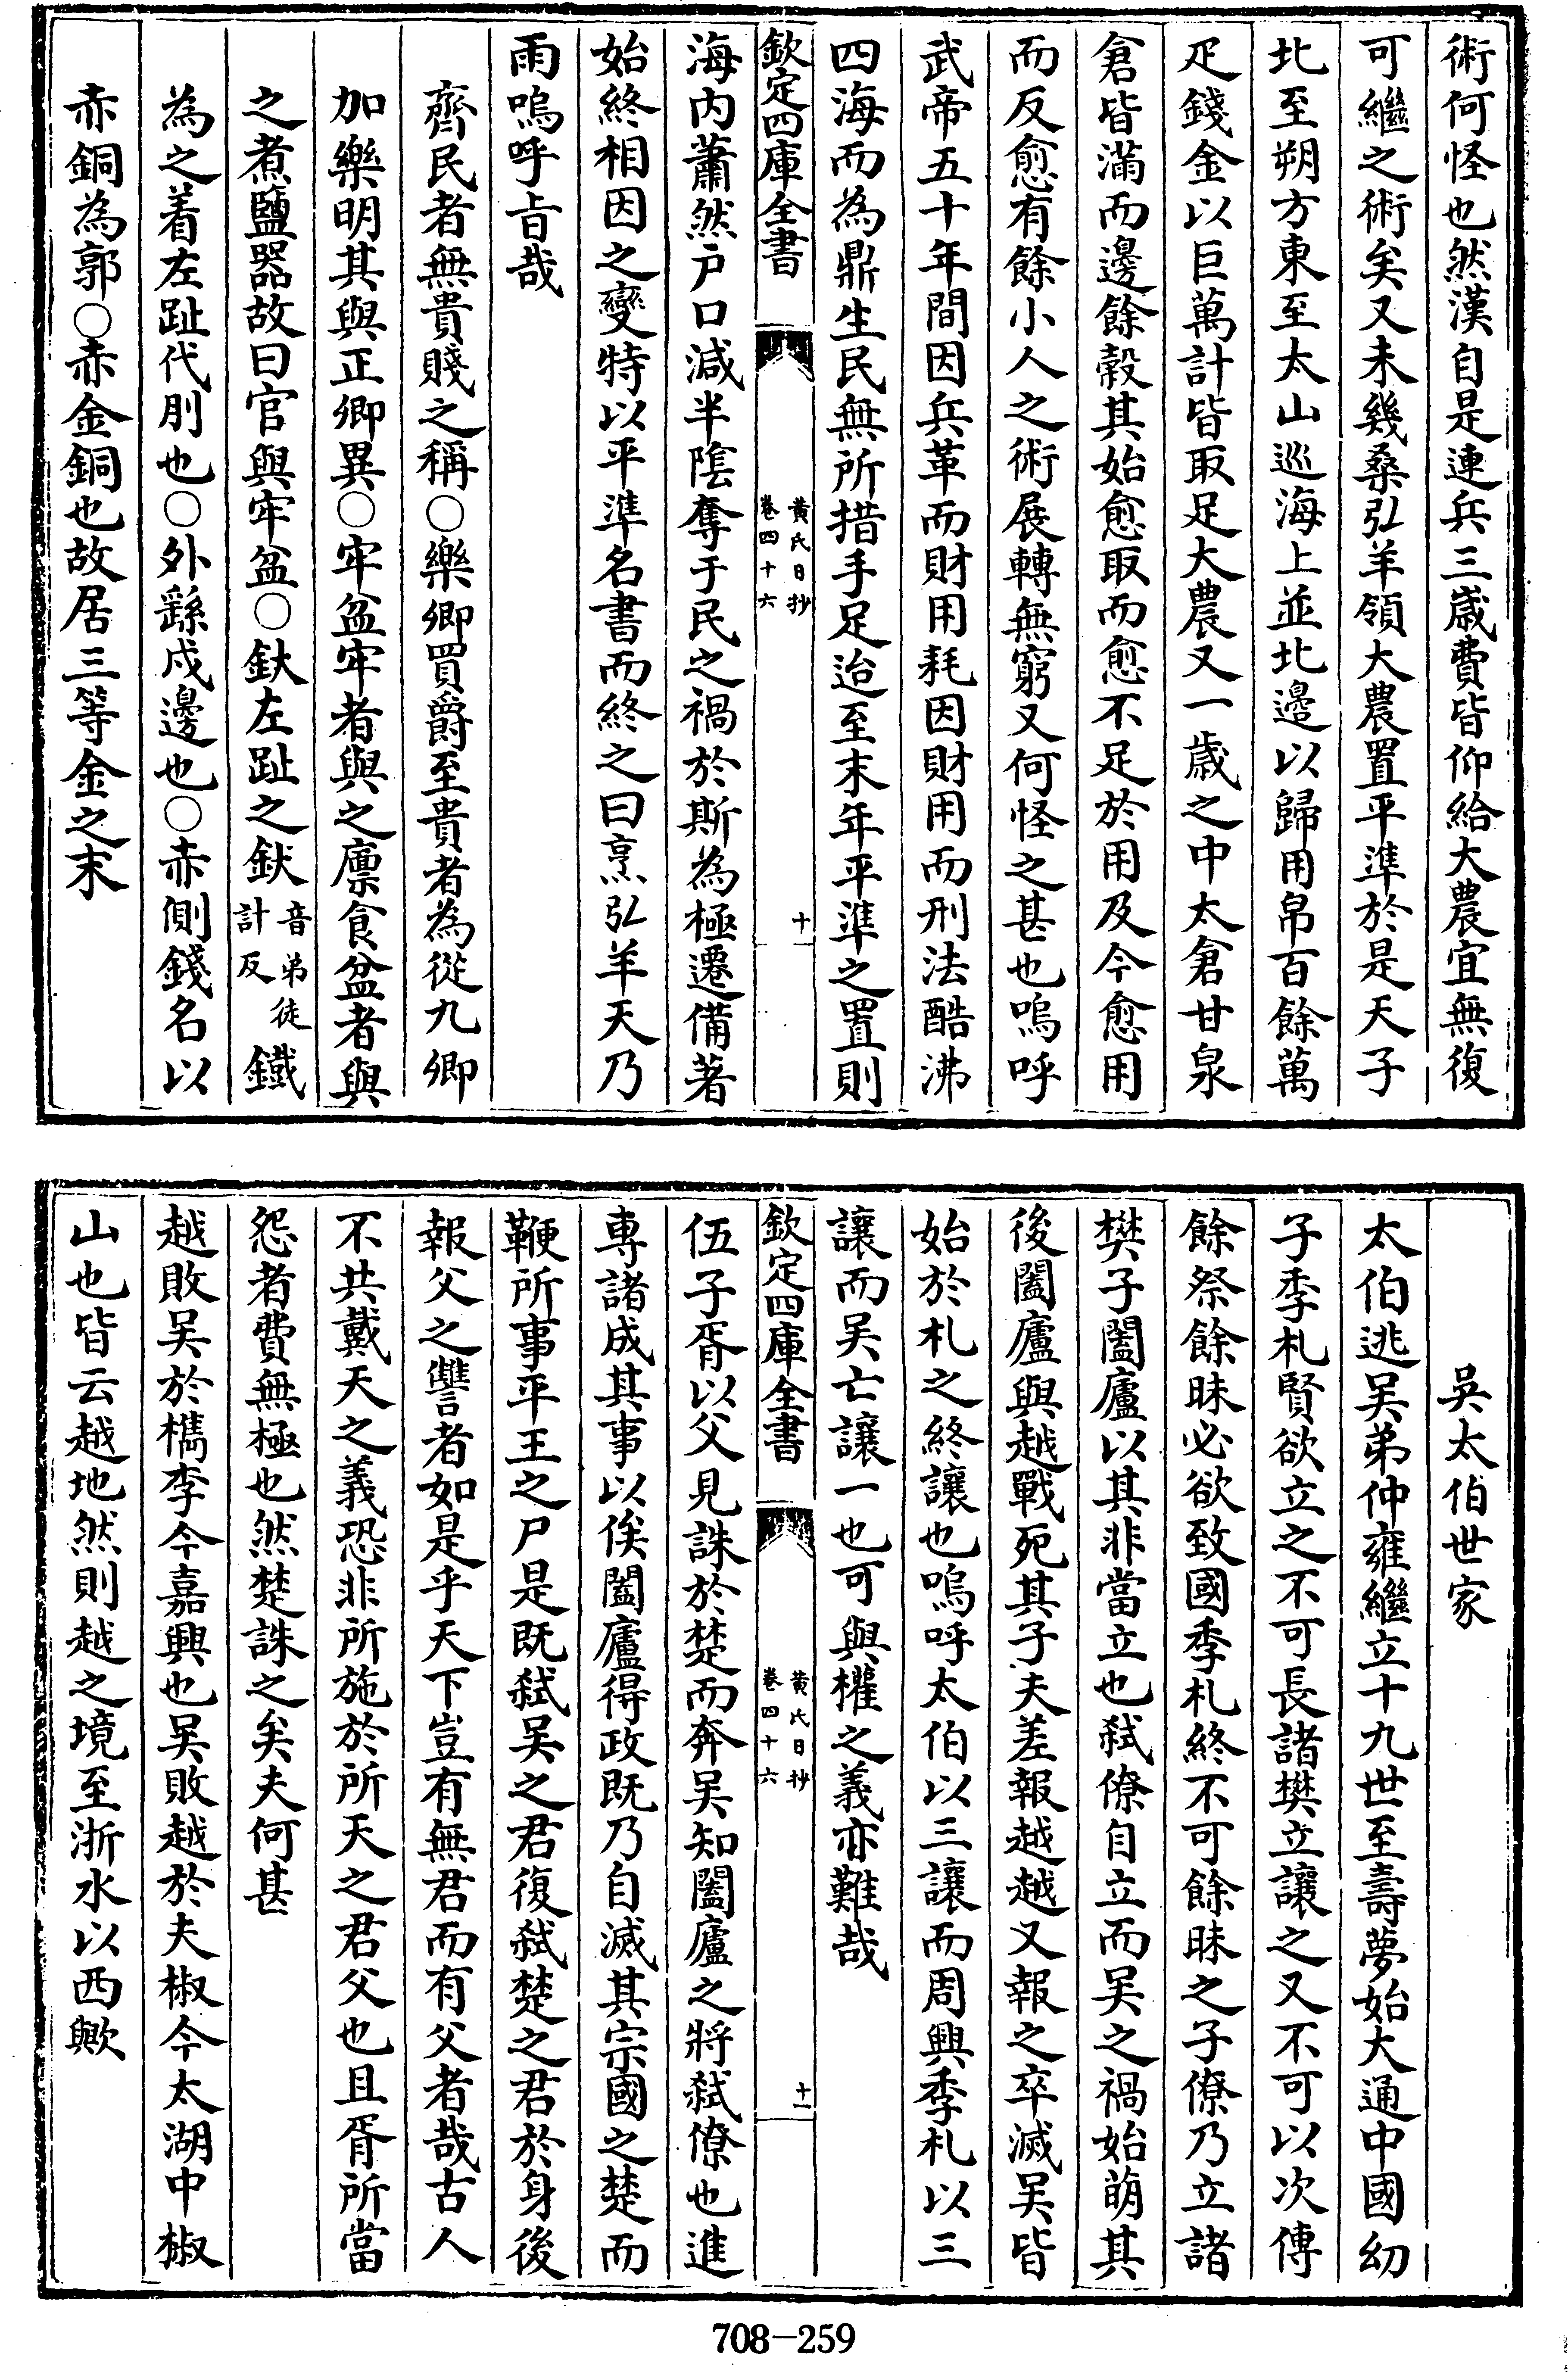 術何怪也然漢自是連兵三歲費皆仰給大農宜無復
可繼之術矣又未幾桑弘羊領大農置平準於是天子
北至朔方東至太山巡海上並北邊以歸用帛百餘萬
疋錢金以巨萬計皆取足大農又一歲之中太倉甘泉
倉皆滿而邊餘穀其始愈取而愈不足於用及今愈用
而反愈有餘小人之術展轉無窮又何怪之甚也嗚呼
武帝五十年間因兵革而財用耗因財用而刑法酷沸
四海而為鼎生民無所措手足迨至末年平準之置則
欽定四庫全書
黃氏日抄
卷四十六
十
海內蕭然戶口減半陰奪于民之禍於斯為極遷備著
始終相因之變特以平準名書而終之曰烹弘羊天乃
雨嗚呼旨哉
齊民者無貴賤之稱○樂卿買爵至貴者為從九卿
加樂明其與正卿異○牢盆牢者與之廩食盆者與
之煮鹽器故曰官與牢盆○釱左趾之釱音弟徒計反鐵
為之着左趾代刖也○外繇戍邊也○赤側錢名以
赤銅為郭○赤金銅也故居三等金之末
吳太伯世家
太伯逃吳弟仲雍繼立十九世至壽夢始大通中國幼
子季札賢欲立之不可長諸樊立讓之又不可以次傳
餘祭餘昧必欲致國季札終不可餘昧之子僚乃立諸
樊子闔廬以其非當立也弒僚自立而吳之禍始萌其
後闔廬與越戰死其子夫差報越越又報之卒滅吳皆
始於札之終讓也嗚呼太伯以三讓而周興季札以三
讓而吳亡讓一也可與權之義亦難哉
欽定四庫全書
黃氏日抄
卷四十六
十一
伍子胥以父見誅於楚而奔吳知闔廬之將弒僚也進
專諸成其事以俟闔廬得政既乃自滅其宗國之楚而
鞭所事平王之尸是既弒吳之君復弒楚之君於身後
報父之讐者如是乎天下豈有無君而有父者哉古人
不共戴天之義恐非所施於所天之君父也且胥所當
怨者費無極也然楚誅之矣夫何甚
越敗吳於檇李今嘉興也吳敗越於夫椒今太湖中椒
山也皆云越地然則越之境至浙水以西歟
708-259